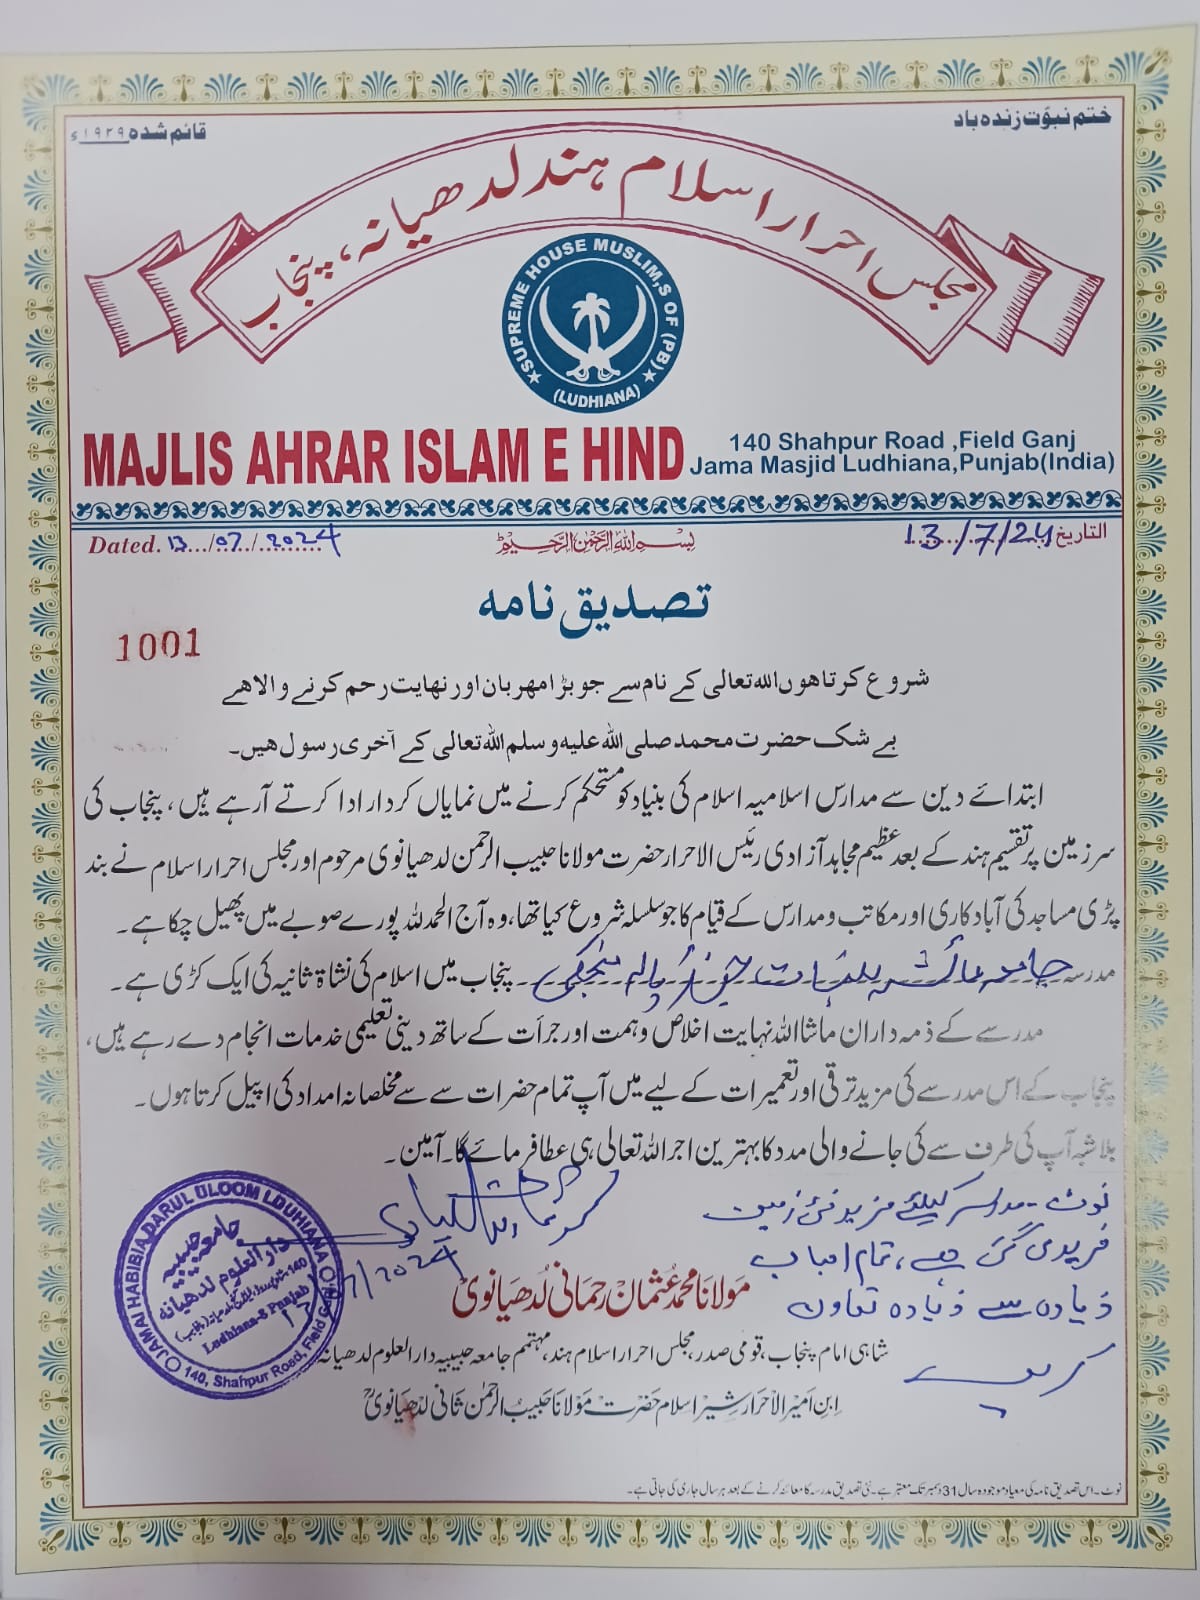 ختم نبوّت زندہ باد
قائم شدہ ۱۹۲۹ء
مجلس احرار اسلام ہند لدھیانہ، پنجاب
SUPREME HOUSE MUSLIM,S OF (PB)
(LUDHIANA)
MAJLIS AHRAR ISLAM E HIND
140 Shahpur Road ,Field Ganj
Jama Masjid Ludhiana,Punjab(India)
Dated. 13/07/2024
بسم اللہ الرحمن الرحیم
التاریخ 13/7/24
تصدیق نامہ
1001
شروع کرتا ہوں اللہ تعالی کے نام سے جو بڑا مهربان اور نهایت رحم کرنے والا هے
بے شک حضرت محمد صلی اللہ علیہ وسلم اللہ تعالی کے آخری رسول هیں۔
ابتدائے دین سے مدارس اسلامیہ اسلام کی بنیاد کو مستحکم کرنے میں نمایاں کردار ادا کرتے آرہے ہیں، پنجاب کی
سرزمین پر تقسیم ہند کے بعد عظیم مجاہد آزادی رئیس الاحرار حضرت مولانا حبیب الرحمن لدھیانوی مرحوم اور مجلس احرار اسلام نے بند
پڑی مساجد کی آبادکاری اور مکاتب و مدارس کے قیام کا جو سلسلہ شروع کیا تھا، وہ آج الحمدللہ پورے صوبے میں پھیل چکا ہے۔
مدرسہ جامعہ عائشہ للبنات پنجاب میں اسلام کی نشاۃ ثانیہ کی ایک کڑی ہے۔
مدرسے کے ذمہ داران ماشااللہ نہایت اخلاص وہمت اور جرأت کے ساتھ دینی تعلیمی خدمات انجام دے رہے ہیں،
پنجاب کے اس مدرسے کی مزید ترقی اور تعمیرات کے لیے میں آپ تمام حضرات سے سے مخلصانہ امداد کی اپیل کرتا ہوں۔
بلاشبہ آپ کی طرف سے کی جانے والی مدد کا بہترین اجر اللہ تعالی ہی عطا فرمائے گا۔ آمین۔
نوٹ - مدارسہ کیلئے مزید نئی زمین
خریدی گئی ہے، تمام احباب
زیادہ سے زیادہ تعاون
کریں
JAMAI HABIBIA DARUL ULOOM LDUHIANA
جامعہ حبیبیہ
دارالعلوم لدھیانہ
Ludhiana-8 Punjab
140, Shahpur Road, Field Ganj
/2024
مولانا محمد عثمان رحمانی لدھیانوی
شاہی امام پنجاب، قومی صدر، مجلس احرار اسلام ہند، مہتمم جامعہ حبیبیہ دارالعلوم لدھیانہ
ابن امیر الاحرار شیر اسلام حضرت مولانا حبیب الرحمٰن ثانی لدھیانویؒ
نوٹ۔ اس تصدیق نامہ کی معیاد موجودہ سال 31 دسمبر تک معتبر ہے۔ نئی تصدیق مدرسہ کا معائنہ کرنے کے بعد ہر سال جاری کی جاتی ہے۔